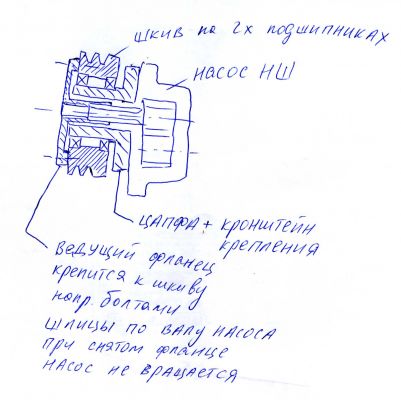 шкив на 2х подшипниках
насос НШ
цапфа + кронштейн
крепления
ведущий фланец
крепится к шкиву
напр. болтами
шлицы по валу насоса
при снятом фланце
насос не вращается